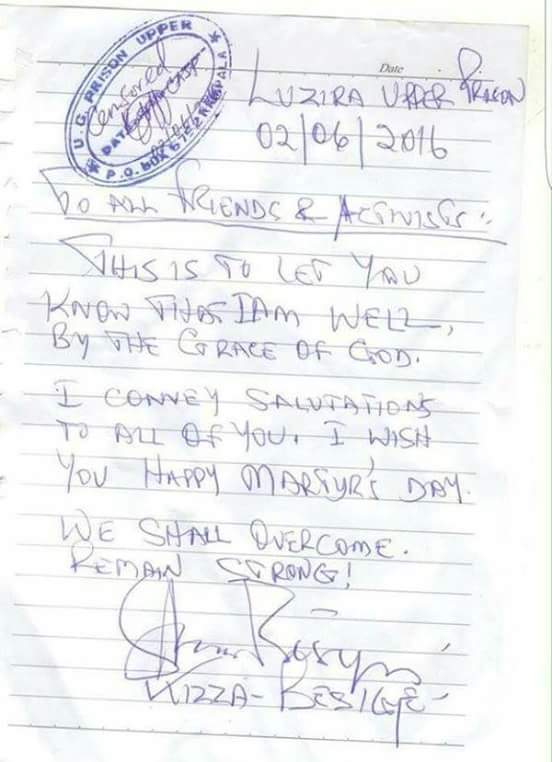 U.G. PRISON UPPER
Censored
DATE
P.O. BOX KAMPALA
Date
LUZIRA UPPER PRISON
02/06/2016
TO ALL FRIENDS & ACTIVISTS:
THIS IS TO LET YOU
KNOW THAT I AM WELL,
BY THE GRACE OF GOD.
I CONVEY SALUTATIONS
TO ALL OF YOU. I WISH
YOU HAPPY MARTYR'S DAY.
WE SHALL OVERCOME.
REMAIN STRONG!
KIZZA-BESIGYE